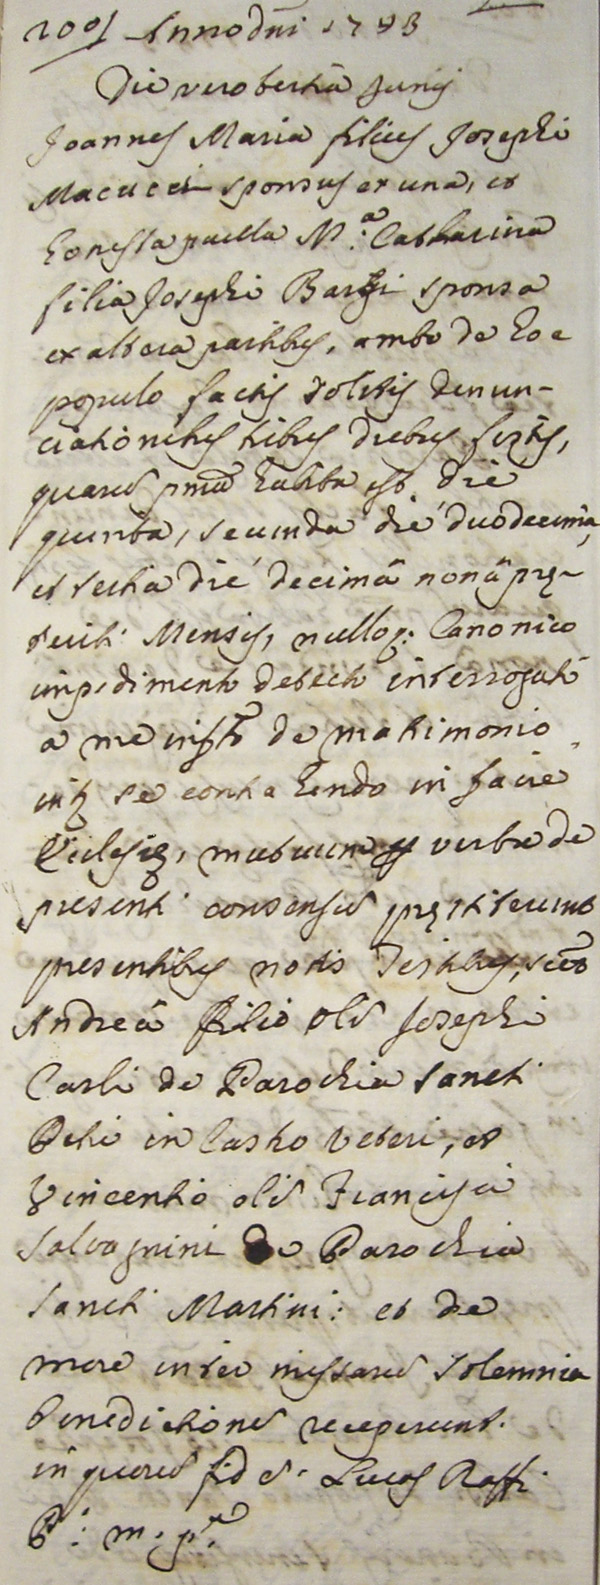 Anno dni 1793
Die vero tertia Junij
Joannes Maria filius Josephi
Macucci sponsus ex una, et
honesta puella M.ª Catharina
filia Josephi Bargi sponsa
ex altera partibus, ambo de hoc
populo factis solitis denun-
ciationibus tribus diebus festis,
quarum prima habita est die
quinta, secunda die duodecima,
et tertia die decimâ nonâ prę-
teriti Mensis, nulloq: Canonico
impedimento detecto interrogati
a me infto de matrimonio
inter se contrahendo in facie
Ecclesię, mutuum per verba de
presenti consensum pręstiterunt
presentibus notis Testibus, sctt
Andrea filio olim Josephi
Carli de Parochia Sancti
Petri in Castro Veteri, et
Vincentio olim Francisci
Salvagnini de Parochia
Sancti Martini: et de
more inter missarum Solemnia
benedictionem receperunt.
in quorum fidem. Lucas Raffi
P: m. p.ª